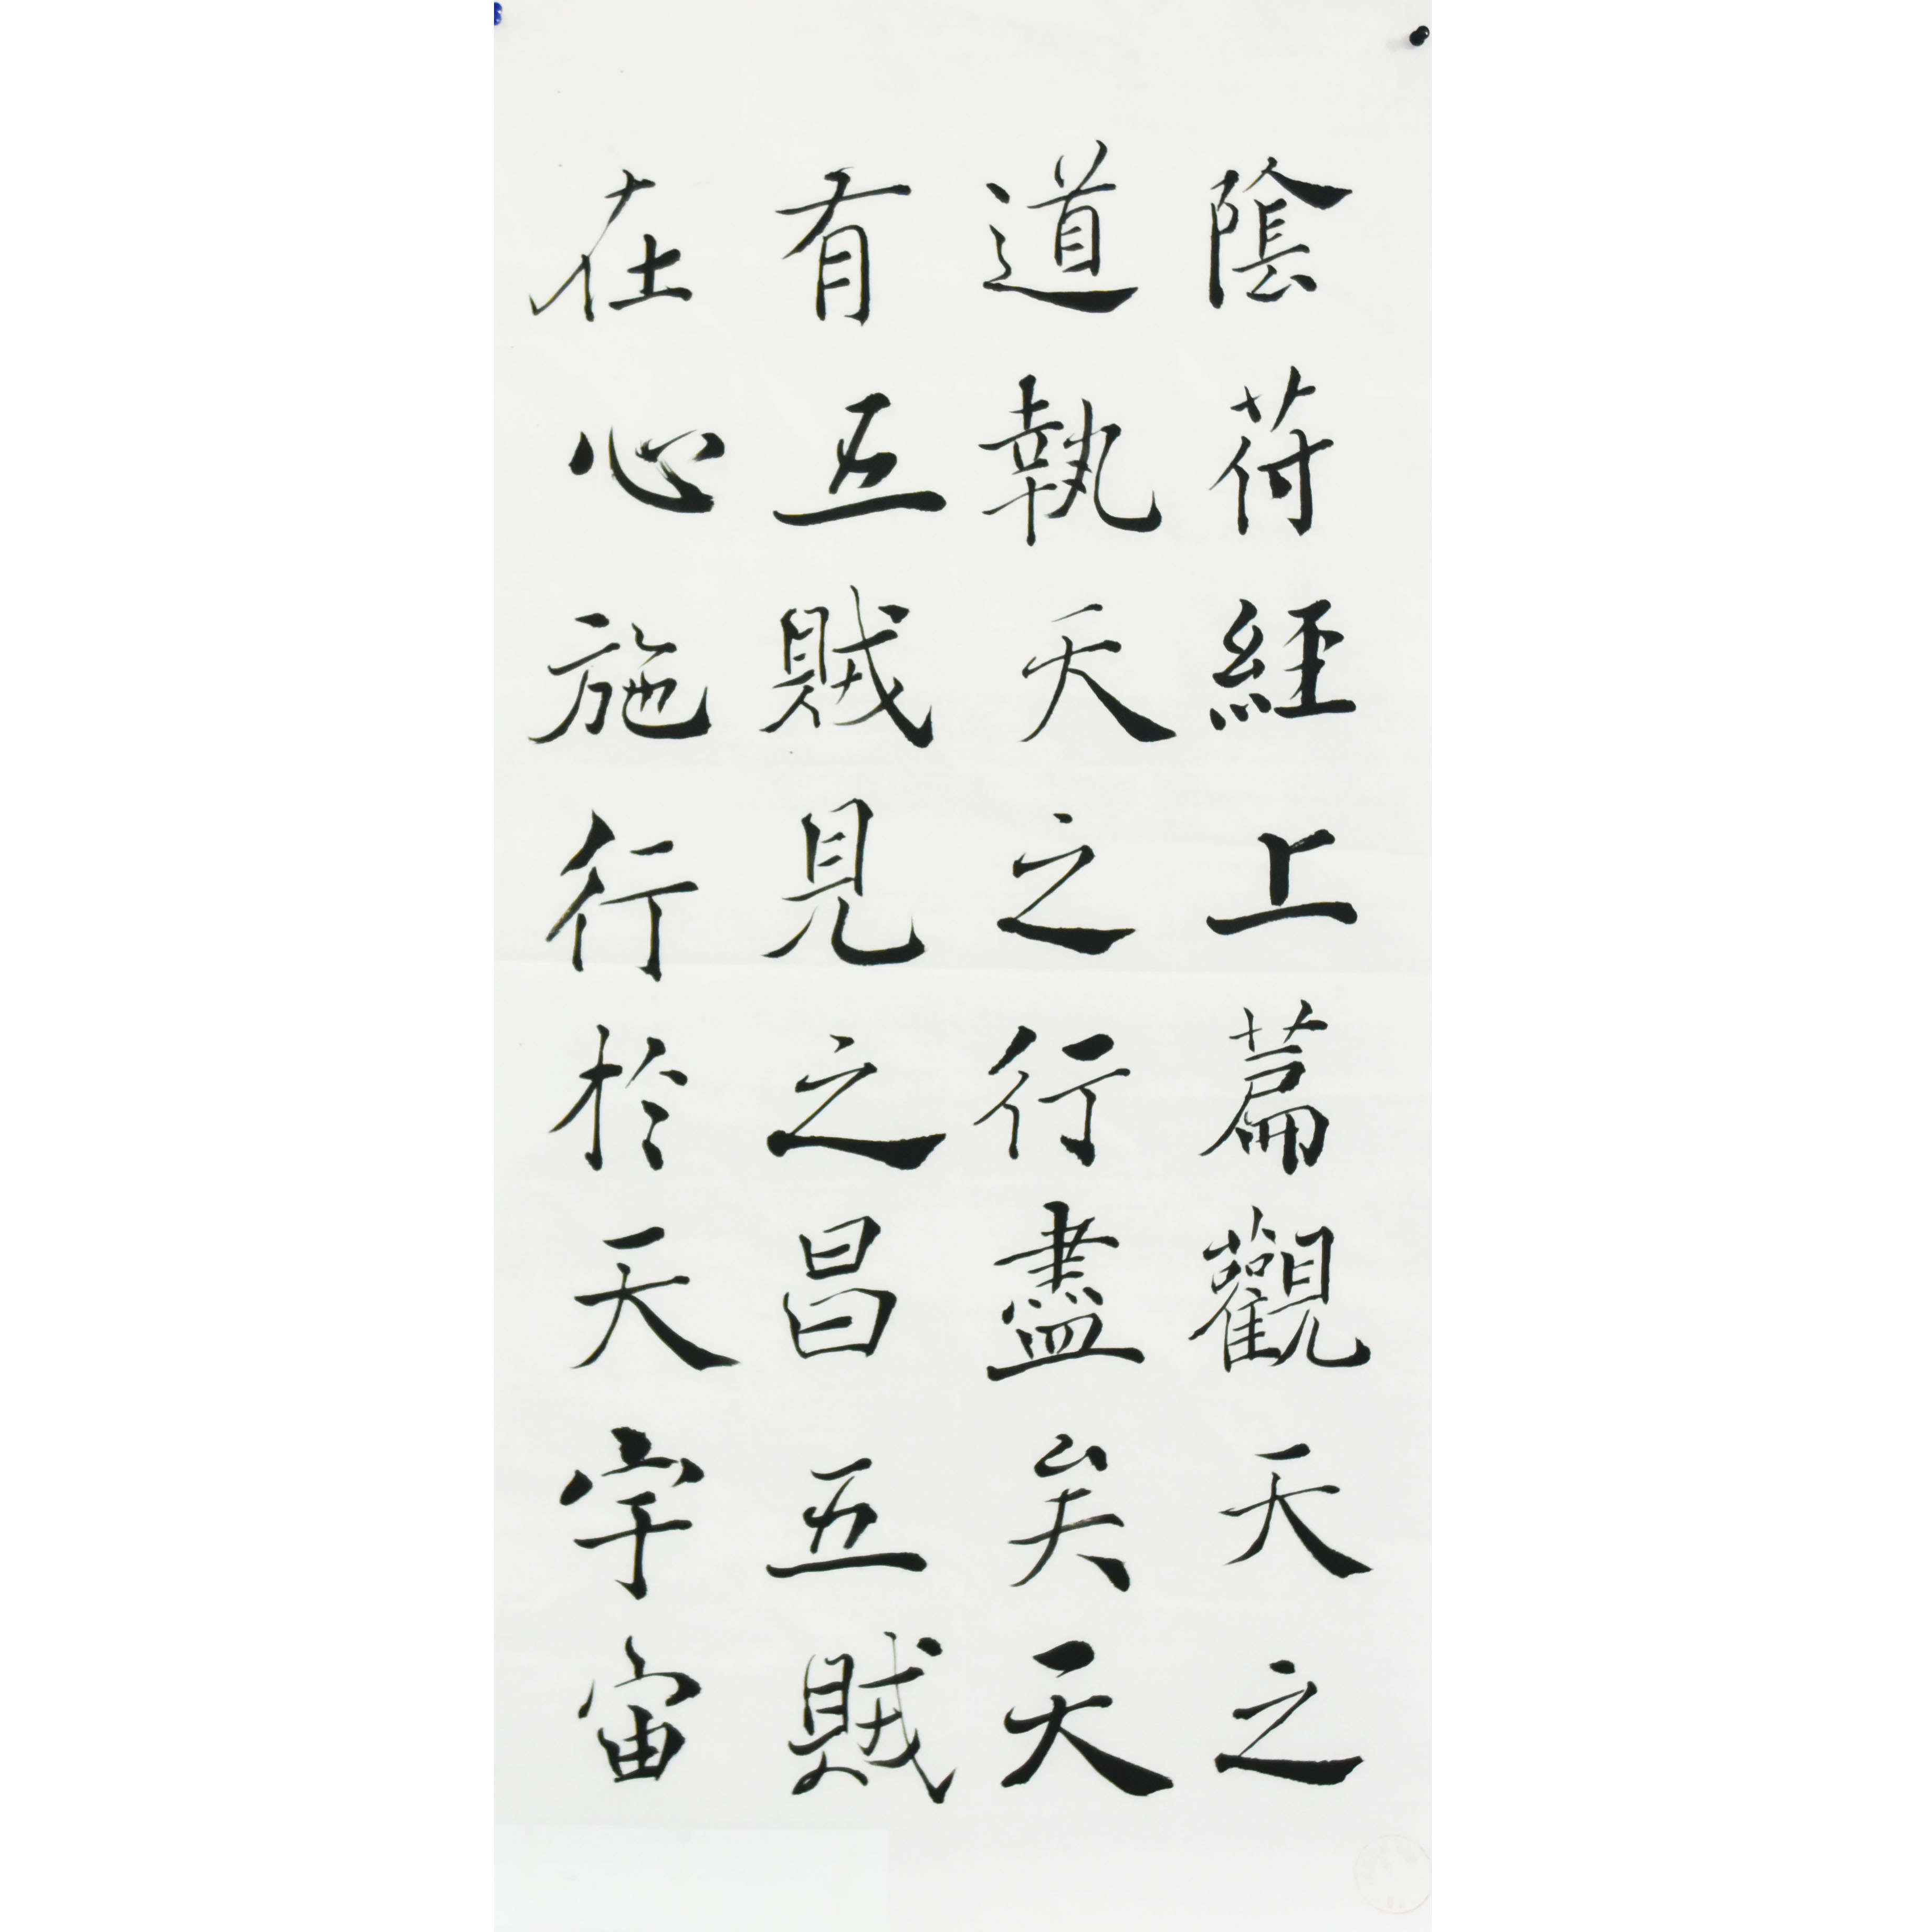 陰苻經上篇觀天之
道執天之行盡矣天
有五賊見之昌五賊
在心施行於天宇宙